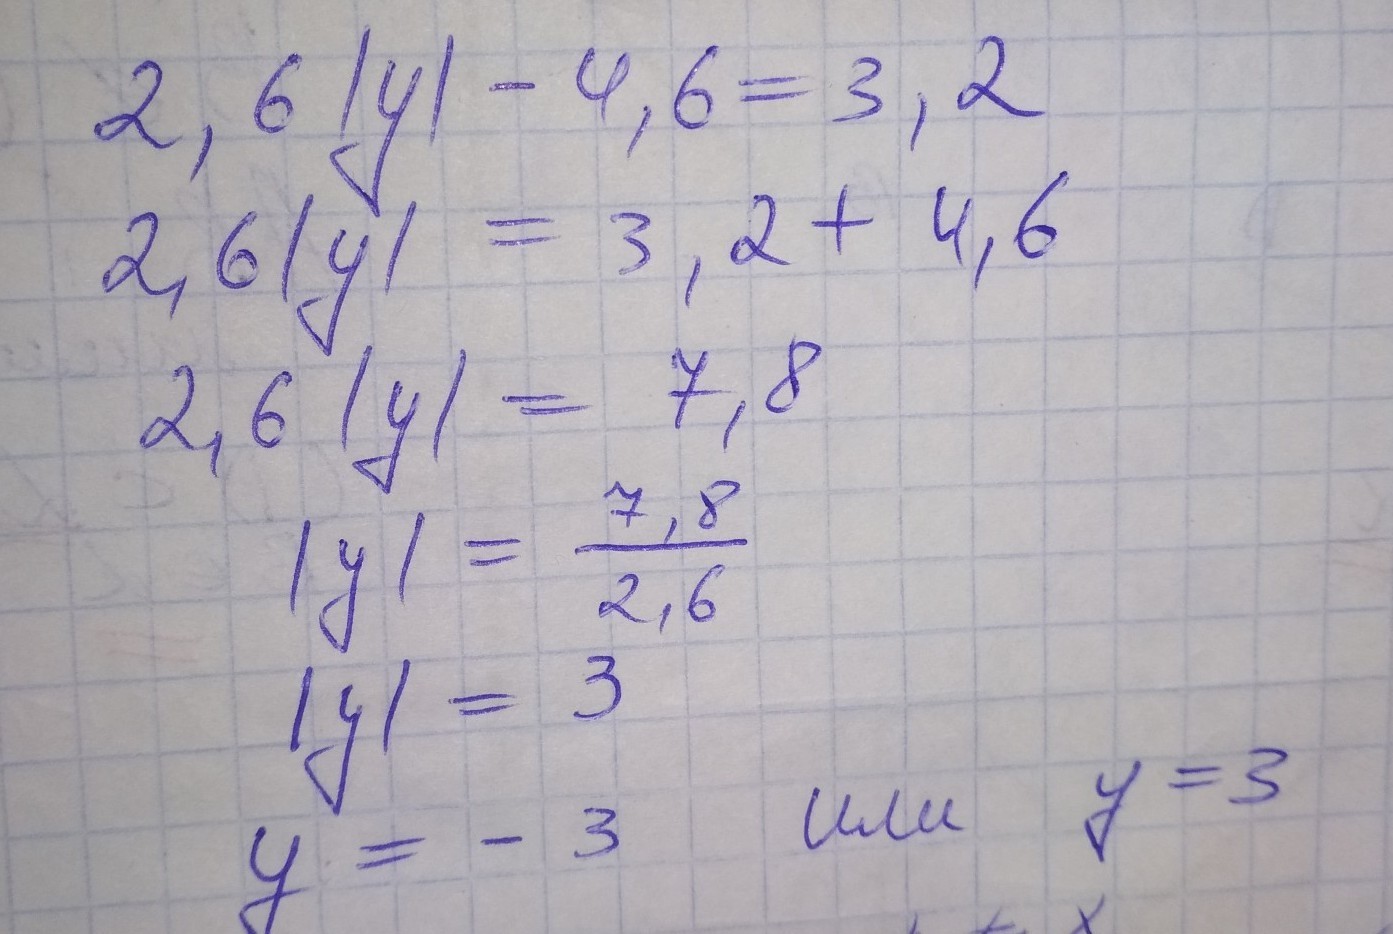 2,6|y| - 4,6 = 3,2
2,6|y| = 3,2 + 4,6
2,6|y| = 7,8
|y| = 7,8/2,6
|y| = 3
y = - 3 или y = 3